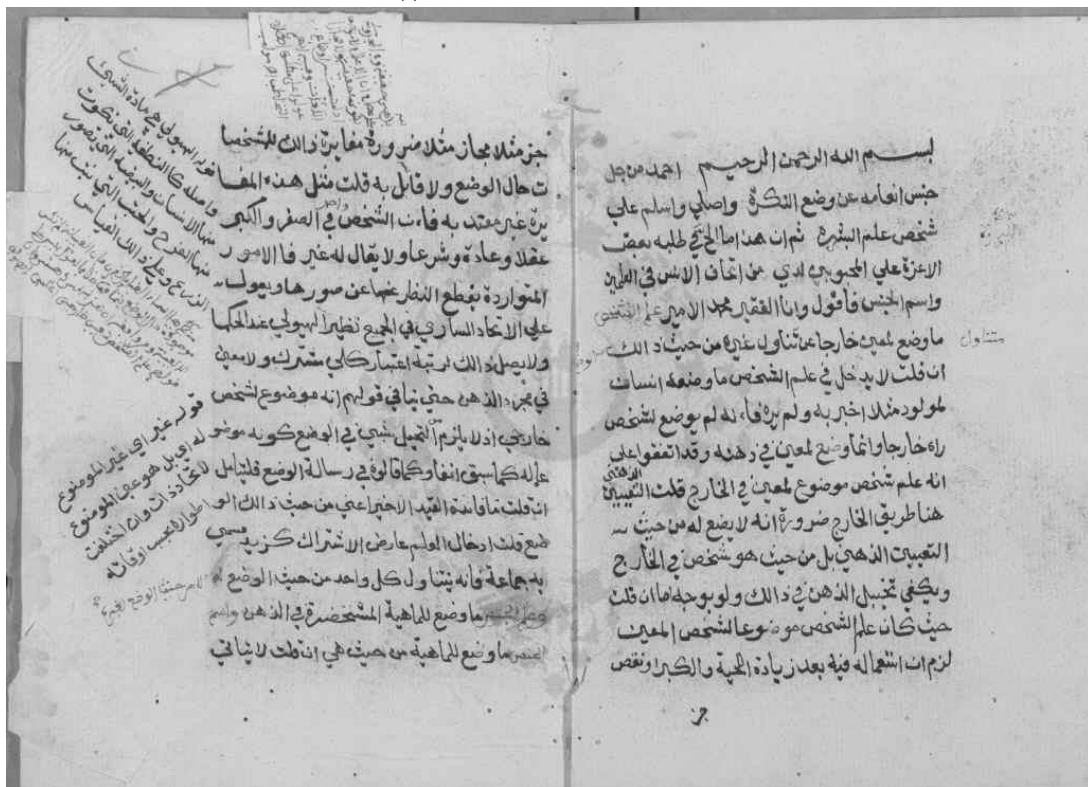 بسم الله الرحمن الرحيم احمد من جل
جنس انعامه عن وضع النكرة واصلي واسلم علي
شخص علم البشرة ثم ان هذا ما الح في طلبه بعض
الاعزة علي المحبوبين لدي من اتحاف الانس في العلمين
واسم الجنس فاقول وانا الفقير محمد الامير علم الشخص
ما وضع لمعين خارجا عن تناول غيره من حيث ذالك
متناول
ان قلت لا يدخل في علم الشخص ما وضعه انسان
لمولود مثلا اخبر به ولم يره فانه لم يوضع لشخص
راه خارجا وانما وضع لمعين في ذهنه وقد اتفقوا علي
انه علم شخص موضوع لمعين في الخارج قلت التعيين
الذهني
هنا طريق الخارج ضرورة انه لا يضع له من حيث
التعيين الذهني بل من حيث هو شخص في الخارج
ويكفي تخييل الذهن في ذالك ولو بوجه ما ان قلت
حيث كان علم الشخص موضوعا لشخص المعين
لزم ان استعماله فيه بعد زيادة اللحية والكبر او نقص
جز
جز مثلا مجاز مثلا ضرورة مغايرة ذالك للشخصا
ت حال الوضع ولا قايل به قلت مثل هذه المغا
يرة غير معتد به فان الشخص في الصغر والكبر
واحد
عقلا وعادة وشرعا ولا يقال له غير فا الامور
المتواردة يقطع النظر عنها عن صورها ويعول
علي الاتحاد الساري في الجميع نظير الهيولي عند الحكما
ولا يصل ذالك لرتبة اعتبار كلي مشترك ولا معين
في مجرد الذهن حتي ينافي قولهم انه موضوع لشخص
خارجي اذ لا يلزم التخيل بشي في الوضع كونه موضو
عا له كما سبق انفا وكما قالوه في رسالة الوضع فليتامل
ان قلت ما فائدة القيد الاخير اعني من حيث ذالك الو
ضع قلت ادخال العلم عارض الاشتراك كزيد مسمي
به جماعة فانه يتناول كل واحد من حيث الوضع له
وعلم الجنس ما وضع للماهية المشخصة في الذهن واسم
الجنس ما وضع للماهية من حيث هي ان قلت لا ينافي
قوله الهيولي هي مادة الشيئ
واصله كا النطفة التي تكون
منها الانسان والبيضة التي تصور
منها الفرخ والحب التي ينبت منها
الزرع وعلي ذالك القياس
قوله غير اي غير الموضوع
له اي بل هو عين الموضوع
لاتحاد ذات وان اختلفت
اطواره بحسب اوقاته